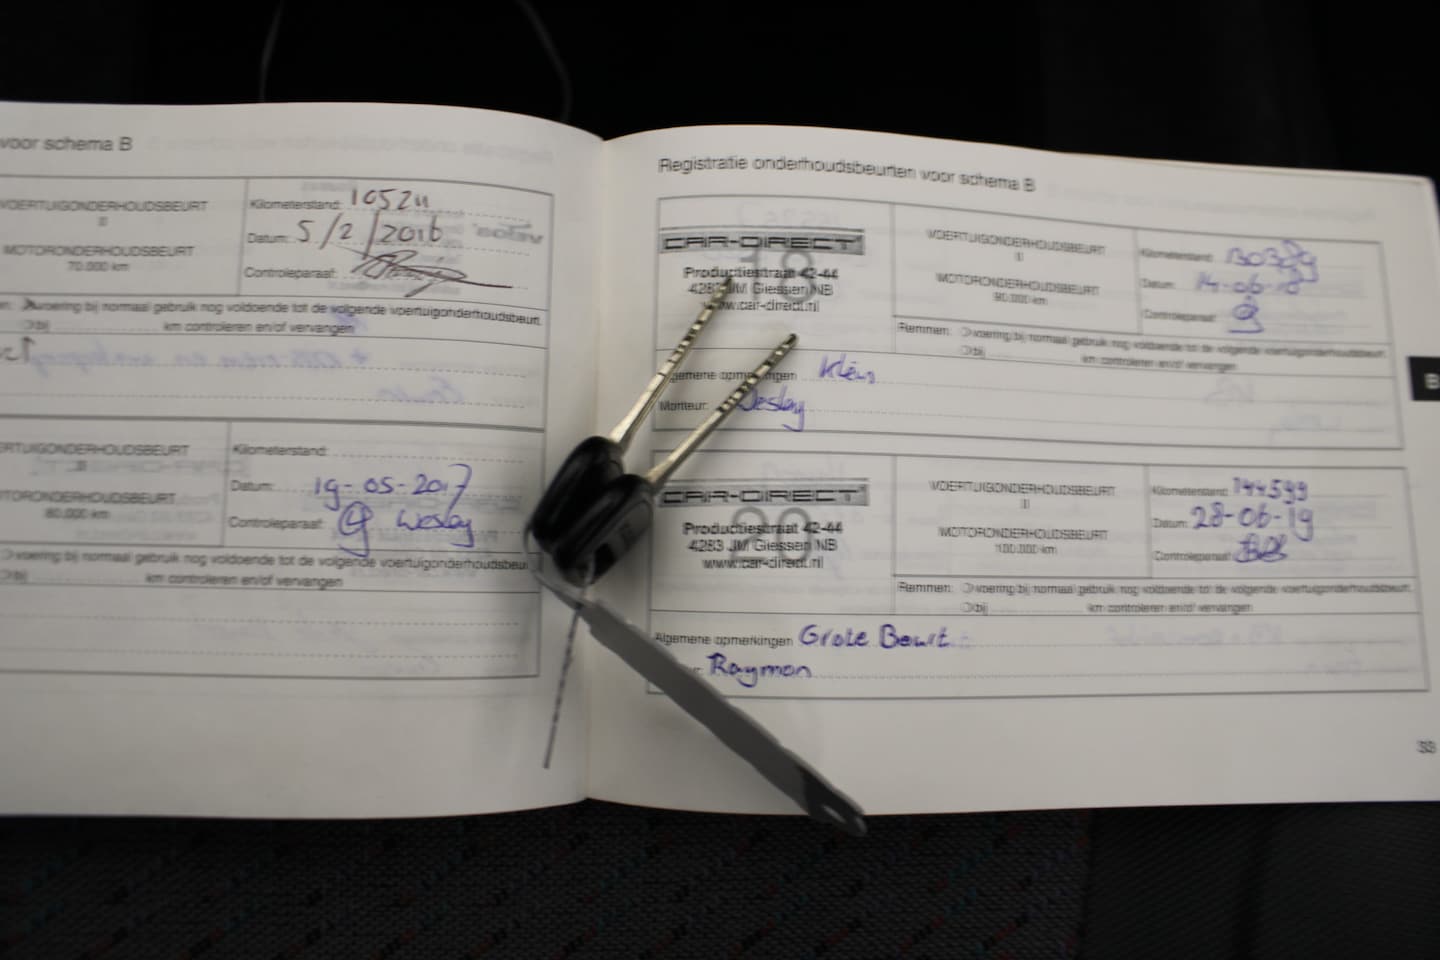 voor schema B
VOERTUIGONDERHOUDSBEURT
II
MOTORONDERHOUDSBEURT
70.000 km
Kilometerstand:
Datum: 5/2/2016
Controleparaaf:
voering bij normaal gebruik nog voldoende tot de volgende voertuigonderhoudsbeurt.
bij km controleren en/of vervangen
VOERTUIGONDERHOUDSBEURT
II
MOTORONDERHOUDSBEURT
80.000 km
Kilometerstand:
Datum: 19-05-2017
Controleparaaf: Wesley
voering bij normaal gebruik nog voldoende tot de volgende voertuigonderhoudsbeu
bij km controleren en/of vervangen
Registratie onderhoudsbeurten voor schema B
CAR-DIRECT
Productiestraat 42-44
4283 JM Giessen NB
www.car-direct.nl
VOERTUIGONDERHOUDSBEURT
II
MOTORONDERHOUDSBEURT
90.000 km
Kilometerstand:
Datum: 14-06-18
Controleparaaf:
Remmen: voering bij normaal gebruik nog voldoende tot de volgende voertuigonderhoudsbeurt.
bij km controleren en/of vervangen
Algemene opmerkingen Klein
Monteur: Wesley
B
CAR-DIRECT
20
Productiestraat 42-44
4283 JM Giessen NB
www.car-direct.nl
VOERTUIGONDERHOUDSBEURT
II
MOTORONDERHOUDSBEURT
100.000 km
Kilometerstand: 144599
Datum: 28-06-19
Controleparaaf:
Remmen: voering bij normaal gebruik nog voldoende tot de volgende voertuigonderhoudsbeurt.
bij km controleren en/of vervangen
Algemene opmerkingen Grote Beurt
Raymon
33